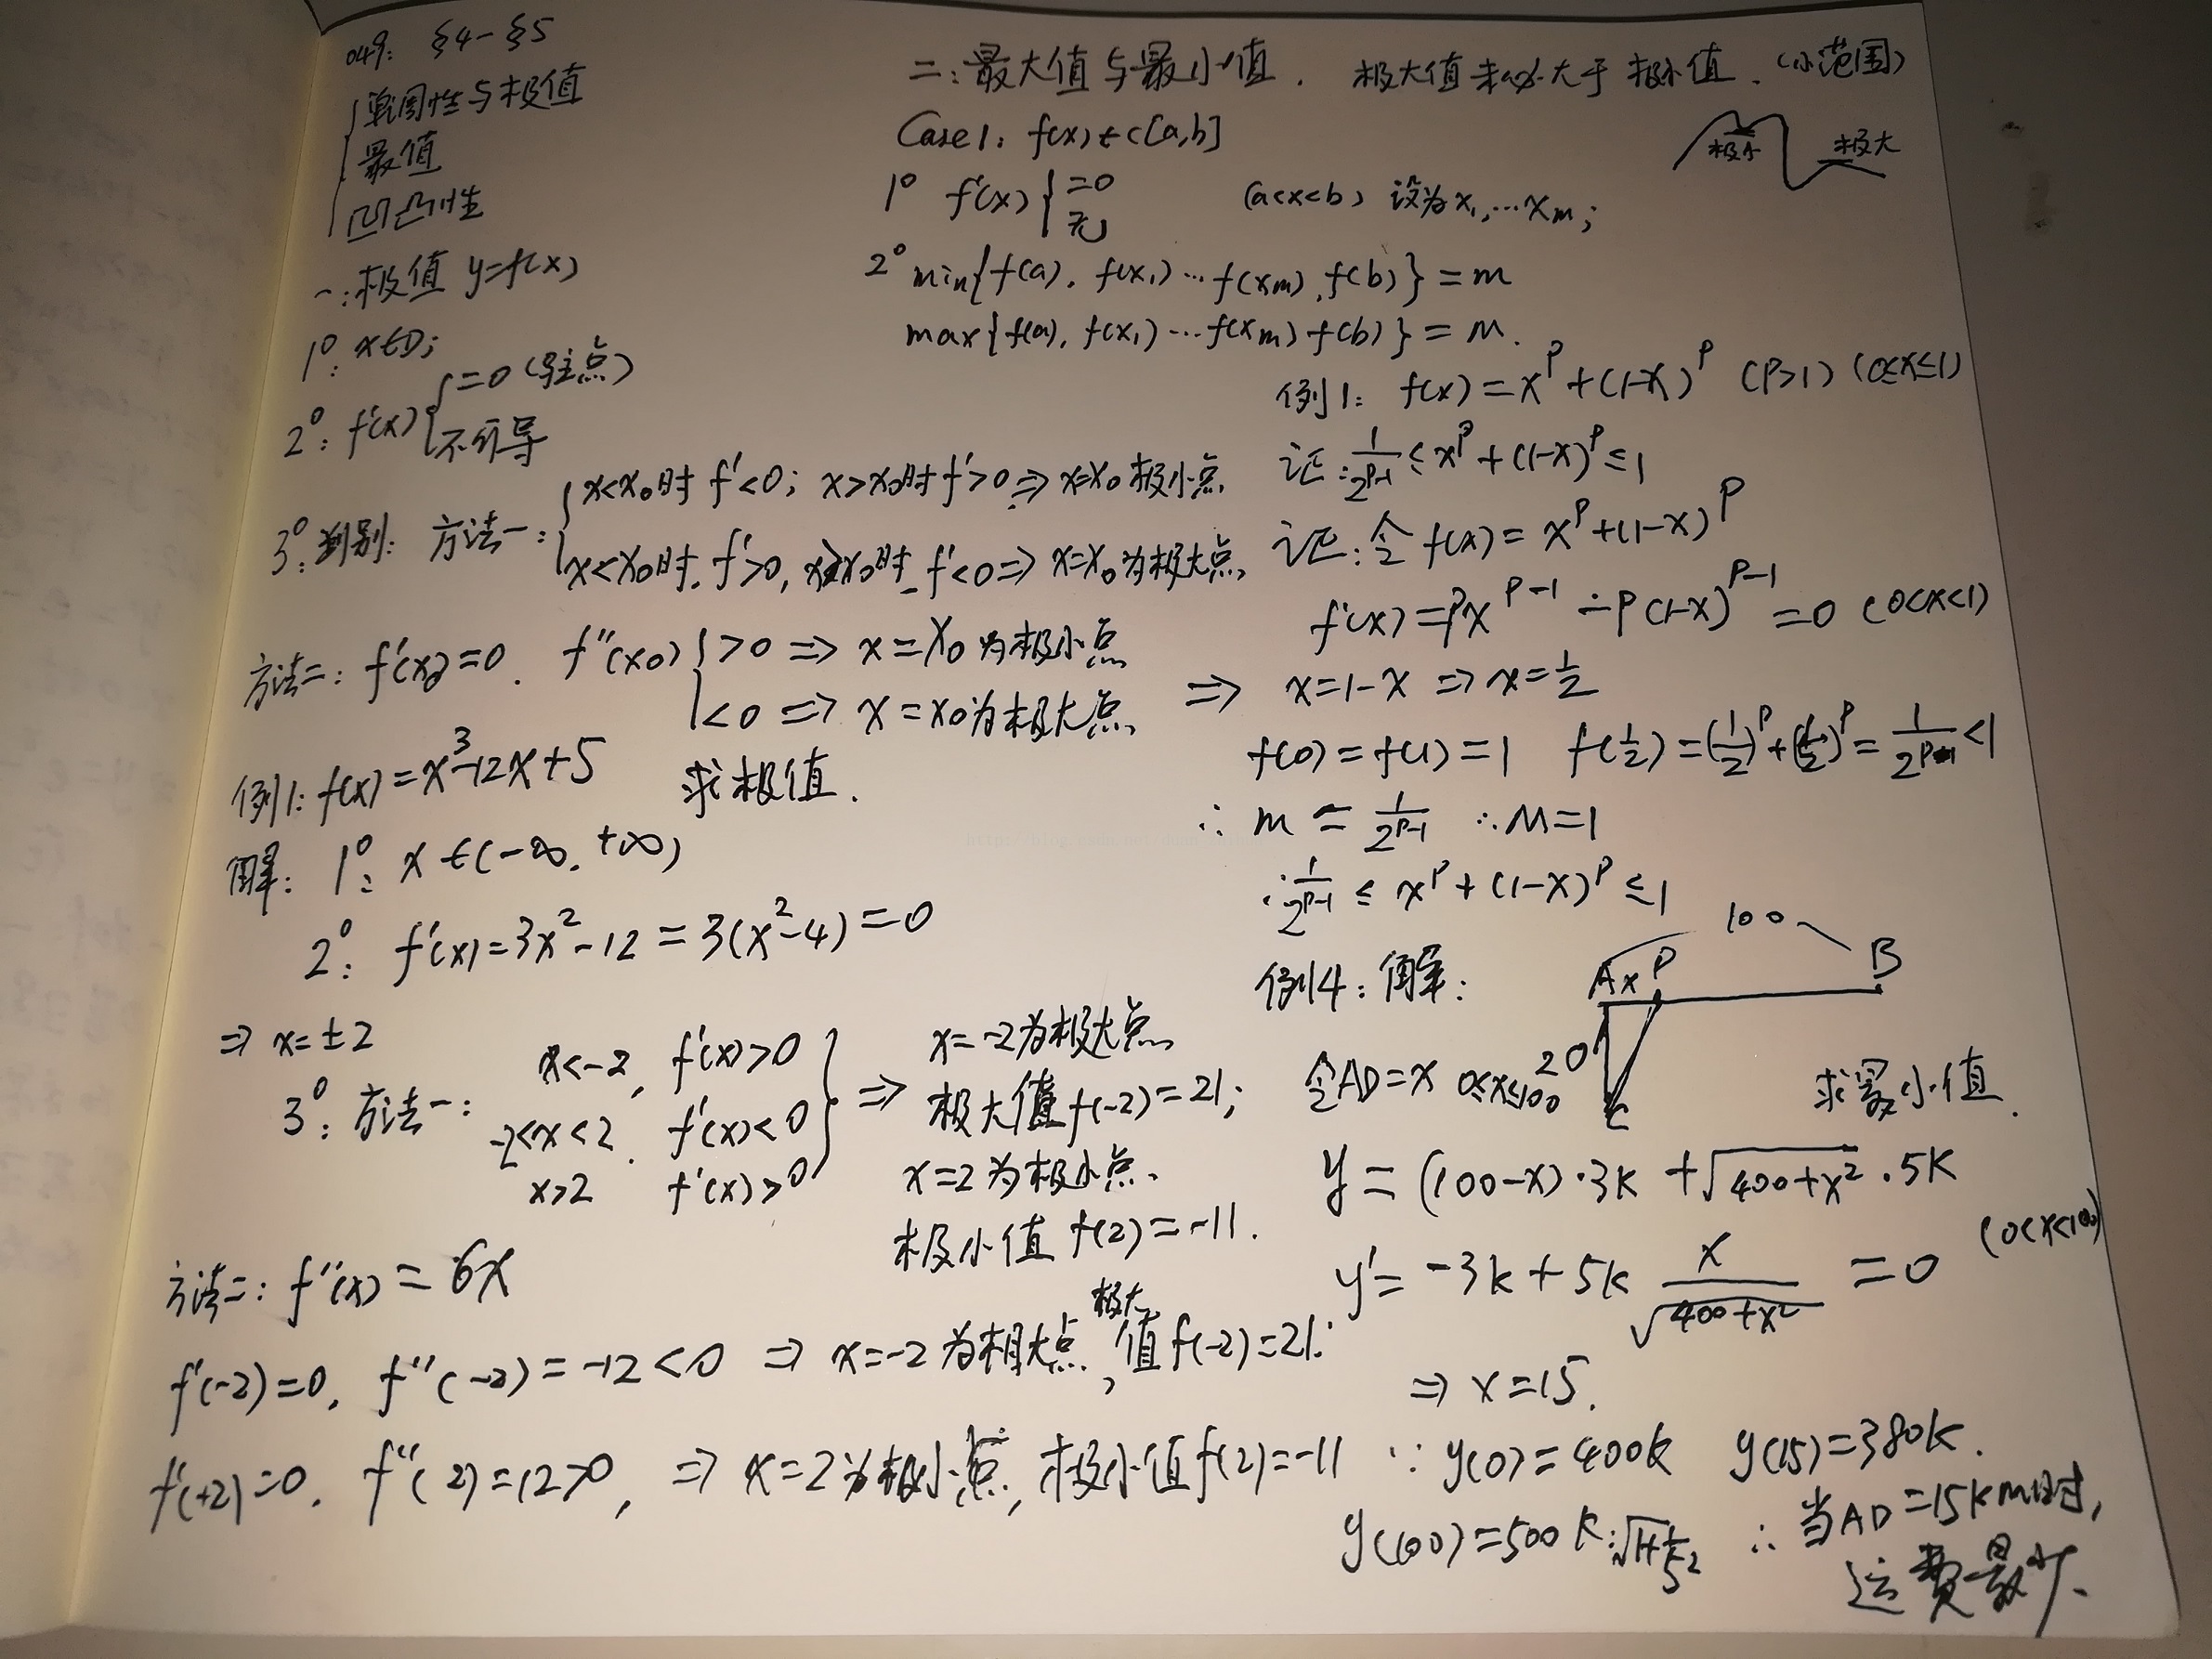 049: §4-§5
单调性与极值
最值
凹凸性
一:极值 y=f(x)
1°: x∈D;
2°: f'(x) { =0 (驻点)
不可导
3°: 判别: 方法一: { x<x₀时 f'<0; x>x₀时 f'>0 ⇒ x=x₀ 极小点
x<x₀时, f'>0, x>x₀时 f'<0 ⇒ x=x₀ 为极大点
方法二: f'(x₀)=0. f''(x₀) { >0 ⇒ x=x₀ 为极小点
<0 ⇒ x=x₀为极大点
例1: f(x)=x³-12x+5 求极值.
解: 1°: x∈(-∞, +∞)
2°: f'(x)=3x²-12=3(x²-4)=0
⇒ x=±2
3°: 方法一: x<-2, f'(x)>0
-2<x<2, f'(x)<0
x>2 f'(x)>0
⇒ x=-2为极大点
极大值f(-2)=21;
x=2为极小点.
极小值 f(2)=-11.
方法二: f''(x)=6x
f'(-2)=0, f''(-2)=-12<0 ⇒ x=-2为极大点, 极大值f(-2)=21.
f'(+2)=0, f''(2)=12>0, ⇒ x=2为极小点, 极小值f(2)=-11
二: 最大值与最小值. 极大值未必大于极小值. (小范围)
极小 极大
Case1: f(x)∈C[a,b]
1° f'(x) { =0
无
(a<x<b) 设为x₁,…xₘ;
2° min{f(a), f(x₁)…f(xₘ), f(b)}=m
max{f(a), f(x₁)…f(xₘ) f(b)}=M.
例1: f(x)=x^p+(1-x)^p (P>1) (0≤x≤1)
证: 1/2^(p-1) ≤ x^p+(1-x)^p ≤1
证: 令f(x)=x^p+(1-x)^p
f'(x)=px^(p-1)-p(1-x)^(p-1)=0 (0<x<1)
⇒ x=1-x ⇒ x=1/2
f(0)=f(1)=1 f(1/2)=(1/2)^p+(1/2)^p=1/2^(p-1)<1
∴ m=1/2^(p-1) ∴M=1
∴ 1/2^(p-1) ≤ x^p+(1-x)^p ≤1
例4: 解:
100
A x P B
20
C
令AD=x 0≤x≤100
求最小值.
y=(100-x)·3k+√(400+x²)·5k
y'=-3k+5k x/√(400+x²)=0 (0<x<100)
⇒ x=15.
∵ y(0)=400k y(15)=380k.
y(100)=500k·√(1+1/5²) ∴ 当AD=15km时,
运费最少.